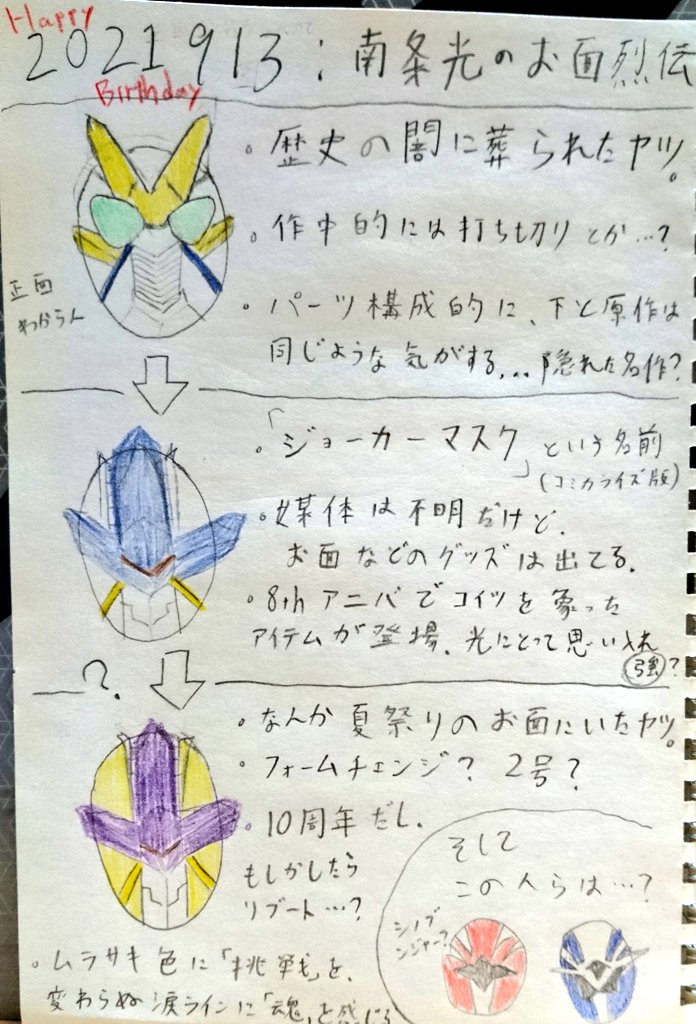 Happy
2021 9 13 : 南条光のお面烈伝
Birthday
。歴史の闇に葬られたヤツ。
。作中的には打ち切りとか…?
正面
わからん
。パーツ構成的に、下と原作は
同じような気がする... 隠れた名作?
。「ジョーカーマスク」という名前
(コミカライズ版)
。媒体は不明だけど、
お面などのグッズは出てる。
。8thアニバでコイツを象った
アイテムが登場、光にとって思い入れ
強?
?
。なんか夏祭りのお面にいたヤツ。
。フォームチェンジ? 2号?
。10周年だし、
もしかしたら
リブート…?
そして
この人らは…?
シノブ
ンジャー?
。ムラサキ色に「挑戦」を、
変わらぬ涙ラインに「魂」を感じる